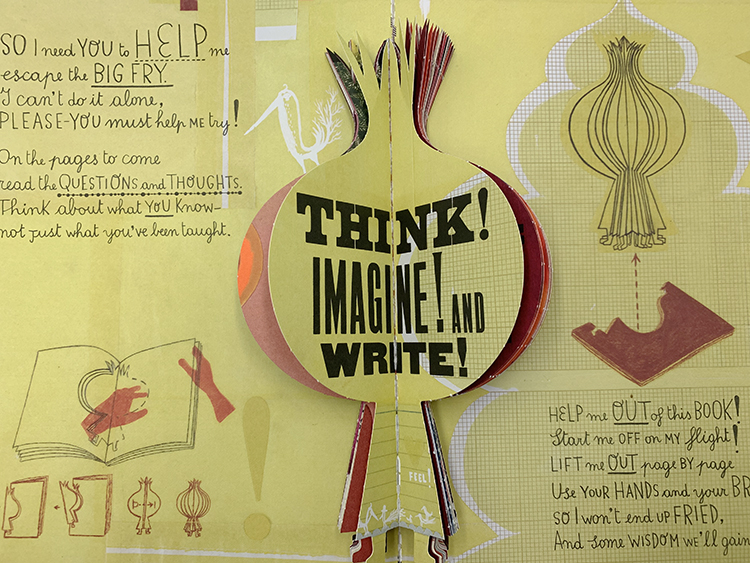 SO I need YOU to HELP me
escape the BIG FRY.
I can't do it alone,
PLEASE-YOU must help ME try!
On the pages to come
read the QUESTIONS and THOUGHTS.
Think about what YOU KNOW-
not just what you've been taught.
THINK!
IMAGINE! AND
WRITE!
FEEL!
HELP me OUT of this BOOK!
Start me OFF on MY flight!
LIFT me OUT page BY page
Use YOUR HANDS and your BR
SO I won't end up FRIED,
And some WISDOM WE'LL gain